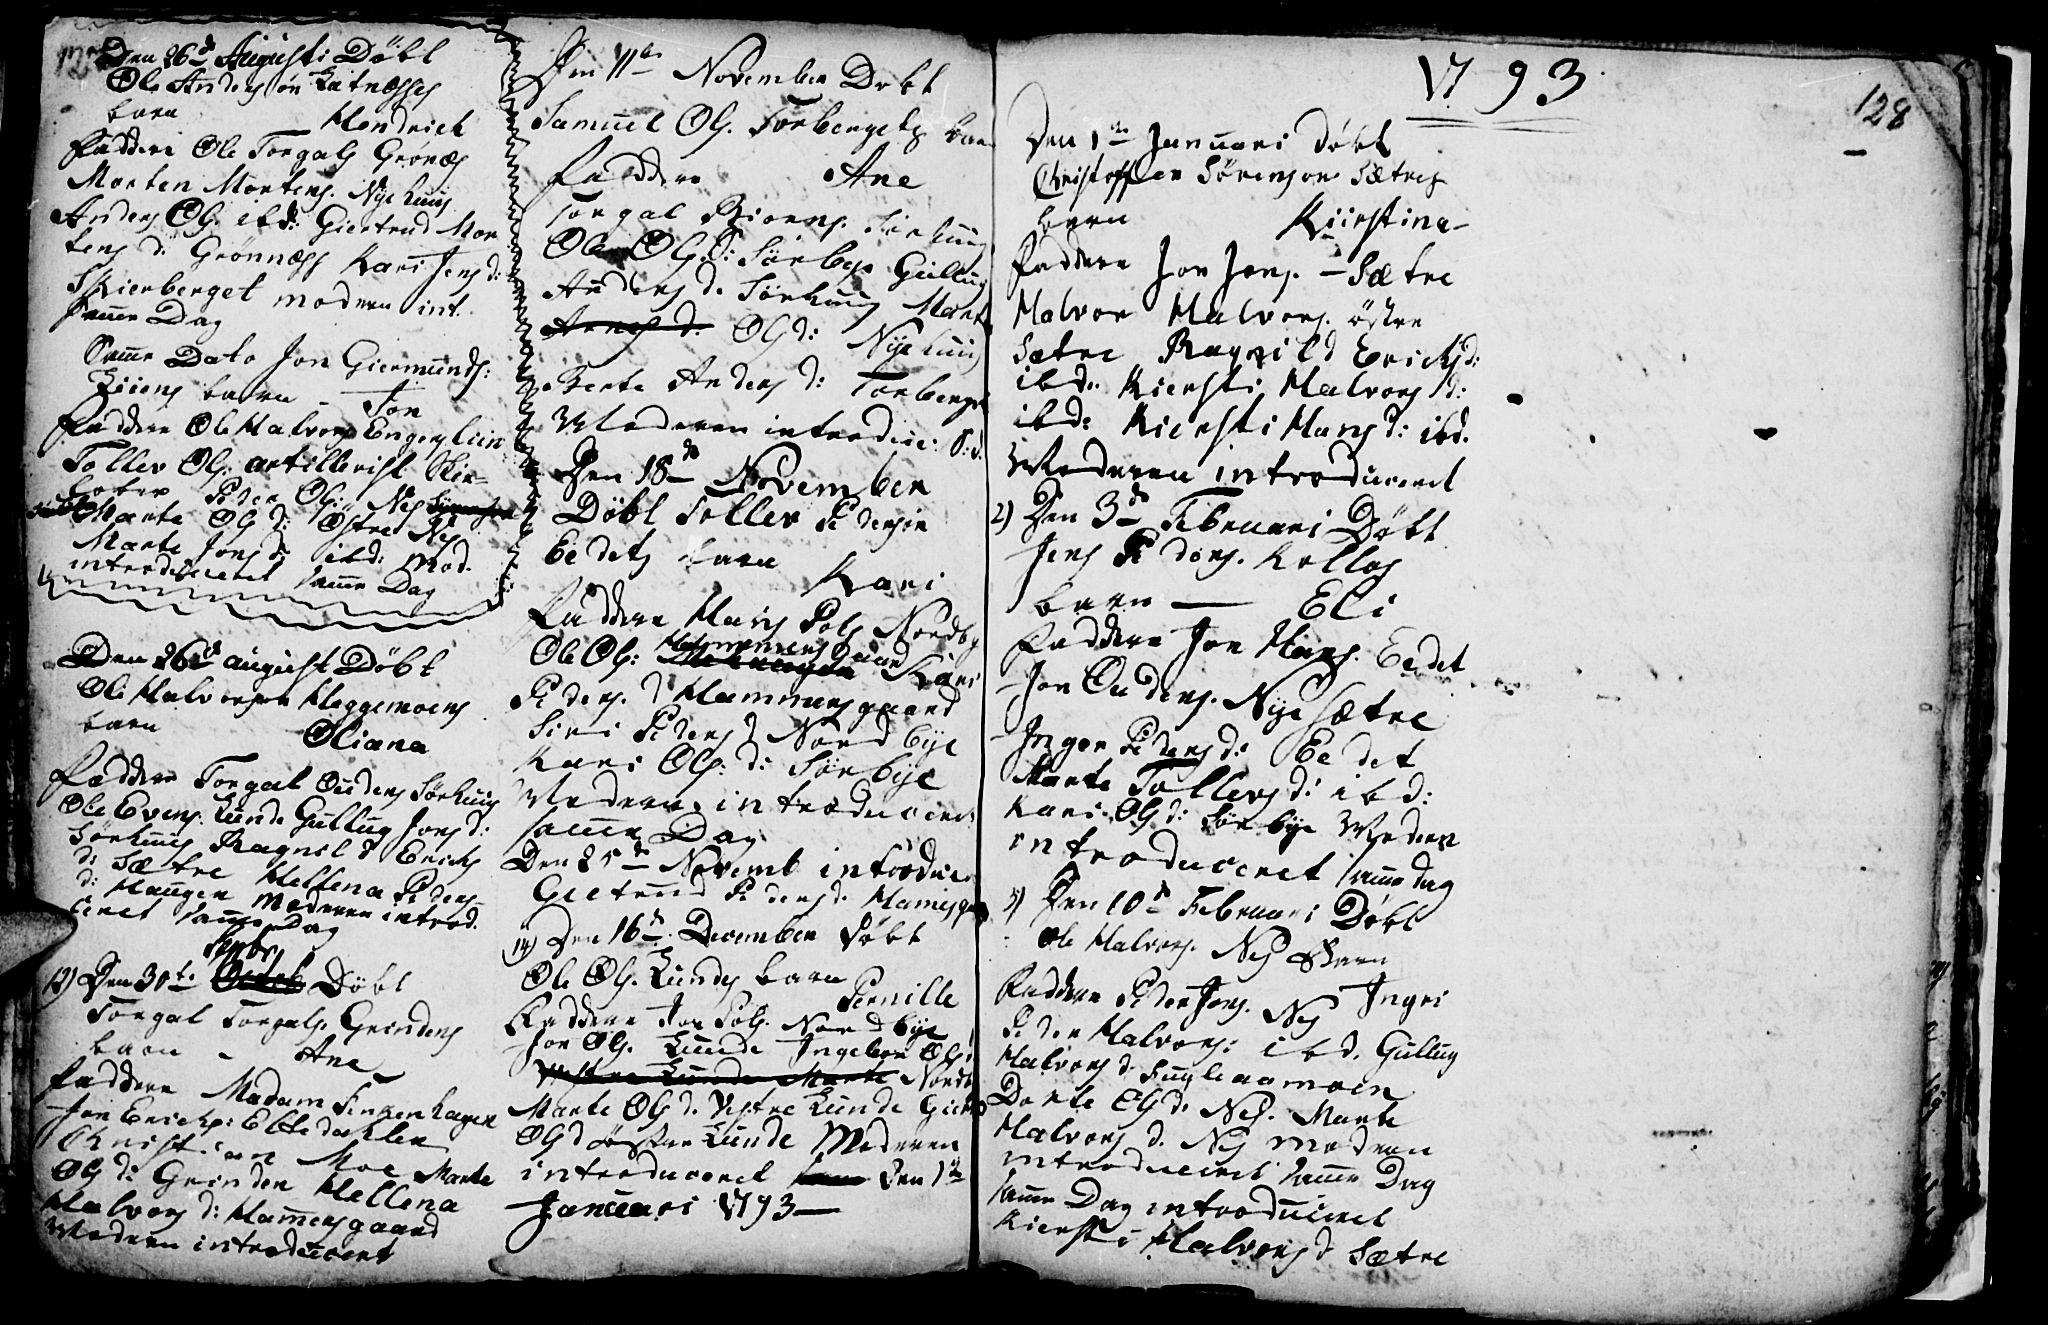 Den 26d Augusti Døbt
Ole Andersøn Katnæsses
barn Hendrich
Faddere Ole Torgals Grønæs
Morten Mortens. Nyehuus
Anders Ols. ibd: Giertrud Mor
tens d: Grønnæss Kari Jens d:
Skierberget moderen int.
samme Dag
Samme Dato Jon Giermunds:
barn - Jon
Faddere Ole Halvors Engerliin
Tollev Ols. artillerist
Peder Ols: Nes
Marte Ols d: Østre Nes
Marte Jons d: ibd: mod.
introduceret samme Dag
Den 26d august Døbt
Ole Halvorsen Heggemoens
barn Oliana
Faddere Torgal Oudens Sørhuus
Ole Evens. Lunde Gullug Jons d:
Sørhuus Ragnild Erichs
d: Sætre Hellena Peders
d: Haugen moderen introd.
ceret samme Dag
Septbr
13) Den 30te Octob Døbt
Torgal Torgals. Grindens
barn - Ane
Faddere Madam Finkenhagen
Jon Erichs: Ebbedahlen
Christian Moe Marte
Ols d: Grinden Hellena
Halvors d: Hamersgaard
Moderen introduceret
Den 11te November Døbt
Samuel Ols. Torbergets barn
Faddere Ane
Torgal Biørns. Sørhuus
Ole Ols. d: Sørbye Gullug
Anders d. Sørhuus Marte
Arnes d. Ols d: Nyehuus
Berte Anders d: Torberget
Moderen introduc: S: d.
Den 18de November
Døbt Tollev Pedersøn
Eedets barn Kari
Faddere Hans Pols Nordby
Ole Ols: Hammersgaard Kari
Peders. d Hammersgaard
Siri Peders d Nordbye
Kari Ols: d: Sørbye
Moderen introduceret
samme Dag
Den 25de Novemb introduce
Gietrud Peders d. Hamersga
14) Den 16d. December Døbt
Ole Ols. Lundes barn
Pernille
Faddere Jon Pols. Nordbye
Jon Ols. Lunde Ingebor Ols
Vestre Lunde Marte Nordb
Marte Ols d. Vestre Lunde Giert
Ols d Østre Lunde Moderen
introduceret Den 1te
Januari 1793
1793
128
Den 1te Januari døbt
Christoffer Sørenson Sætres
barn Kierstina
Faddere Jon Jons. - Sætre
Halvor Halvors. østre
Sætre Ragnild Erichs d:
ibd. Kiersti Halvors d:
ibd: Kiersti Hans d: ibd.
Moderen introduceret
2) Den 3de Februari Døbt
Jens Peders. Kollos
barn Eli
Faddere Jon Hans. Eedet
Jon Oudens. Nyesætre
Inger Peders d: Eedet
Marte Tollevs d: ibd:
Kari Ols d: Sørbye Moderen
introduceret samme dag
3) Den 10d Februari Døbt
Ole Halvors. Nes Barn
Ingri
Faddere Peder Jons. Nes
Peder Halvors: ibd. Gullug
Halvors d: Fugleaamoen
Dorte Ols d. Nes. Marte
Halvors d. Nes moderen
introduceret samme Dag
samme Dag introduceret
Kiersti Halvors d Sætre